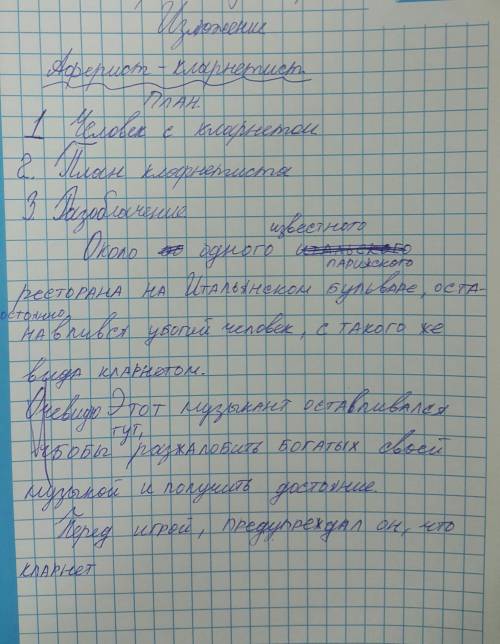 Изложение
Аферист - кларнетист.
План.
1 Человек с кларнетом
2. План кларнетиста
3 Разоблачение
известного
Около одного итальского
парижского
ресторана на Итальянском бульваре, оста-
навлився убогий человек, с такого же
вида кларнетом.
Очевидо Этот музыкант оставливался
тут,
чтобы разжалобить богатых своей
музыкой и получить достояние.
Перед игрой, предупреждал он, что
кларнет